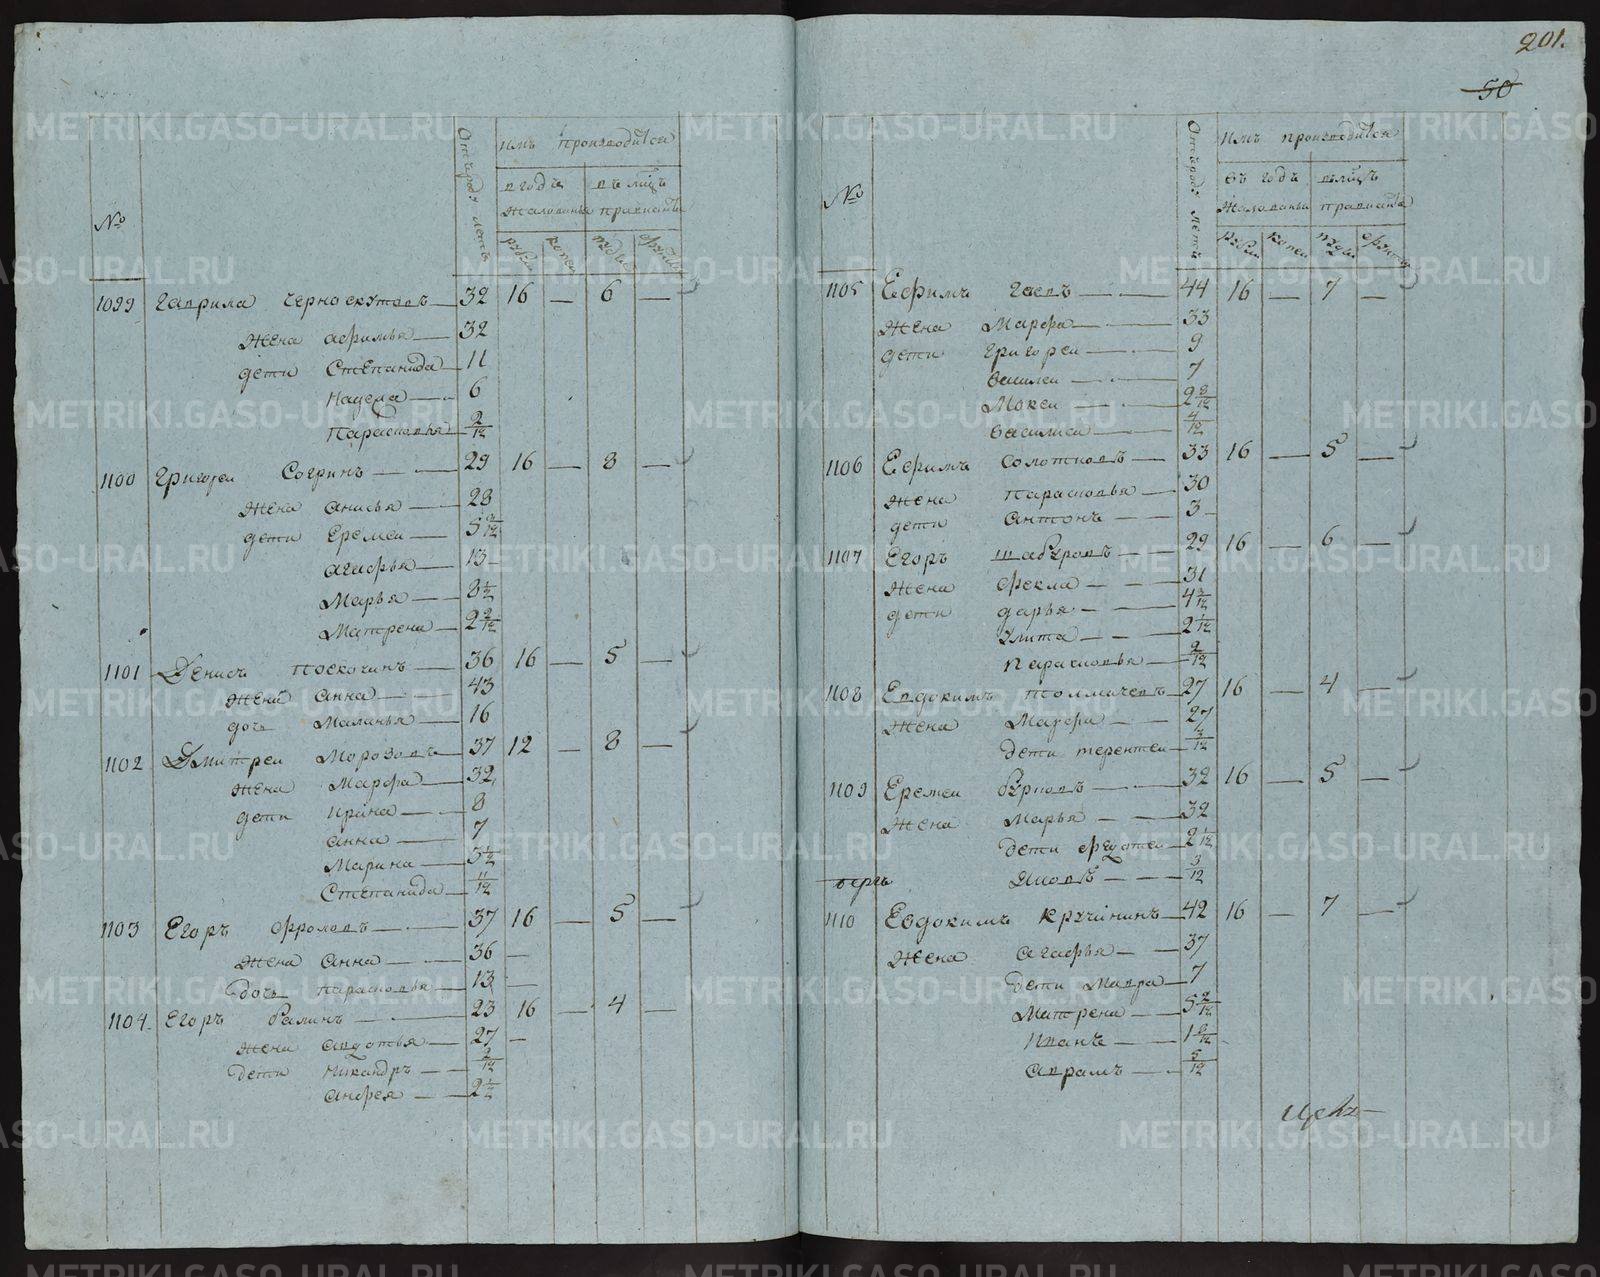 201.
50
№
Отъ роду лѣтъ
имъ производится
в годъ
жалованья
в мцъ
провианта
рубли
копеи
пуды
фунты
1099 Гаврила Черноскутовъ — 32 16 — 6 —
жена афимья — 32
дети Степанида — 11
Надежда — 6
Парасковья — 2/12
1100 Григореи Согринъ — 29 16 — 8 —
жена анисья — 28
дети Еремеи — 5
агафья — 13
Марья — 8 1/2
Матрена — 2 2/12
1101 Денисъ Поскочинъ — 36 16 — 5 —
жена анна — 43
дочь Маланья — 16
1102 Дмитреи Морозовъ — 37 12 — 8 —
жена Марфа — 32
дети Ирина — 8
анна — 7
Марина — 3 1/2
Степанида — 11/12
1103 Егоръ Фроловъ — 37 16 — 5 —
жена анна — 36 —
дочь парасковья — 13 —
1104. Егоръ Балинъ — 23 16 — 4 —
жена авдотья — 27 —
дети Никандръ — 2/12
андрея — 2 1/2
№
Отъ роду лѣтъ
имъ производится
въ годъ
жалованьи
в мцъ
провианта
рубли
копеи
пуды
фунты
1105 Ефимъ Гаевъ — 44 16 — 7 —
жена Марфа — 33
дети григореи — 9
василеи — 7
Мокеи — 2 8/12
василиси — 4/12
1106 Ефимъ Солотновъ — 33 16 — 5 —
жена парасковья — 30
дети антонъ — 3
1107 Егоръ шабуровъ — 29 16 — 6 —
жена фекла — 31
дети дарья — 4 3/12
улита — 2 1/12
парасковья — 2/12
1108 Евдокимъ толмачевъ — 27 16 — 4 —
жена Марфа — 27
дети терентеи — 3/12
1109 Еремеи Бурковъ — 32 16 — 5 —
жена Марья — 32
дети федотеи — 2 1/12
Яковъ — 3/12
1110 Евдокимъ Кручининъ — 42 16 — 7 —
жена агафья — 37
дети Мавра — 7
Матрена — 5 2/12
Иванъ — 1
аврамъ — 5/12